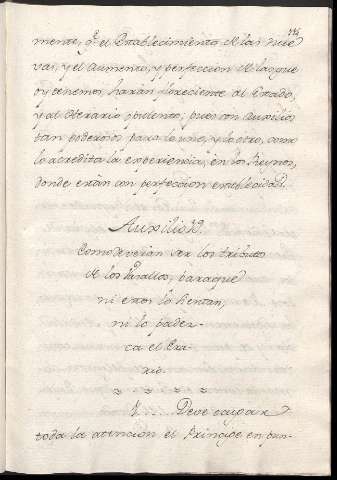 mente, q.e el Establecimiento de las nue
vas, y el aumento, y perfeccion de las que
oy tenemos, harán floreciente al Estado,
y al Herario opulento, pues son Auxilios
tan poderosos para lo uno, y lo otro, como
lo acredita la experiencia, en los Reynos,
donde están con perfeccion establecidas.
Auxilio
Como deverian ser los tributos
de los Vasallos, paraque
ni estos lo sientan,
ni lo padez-
ca el Era-
rio.
Deve ocupar
toda la atencion el Principe en pun-